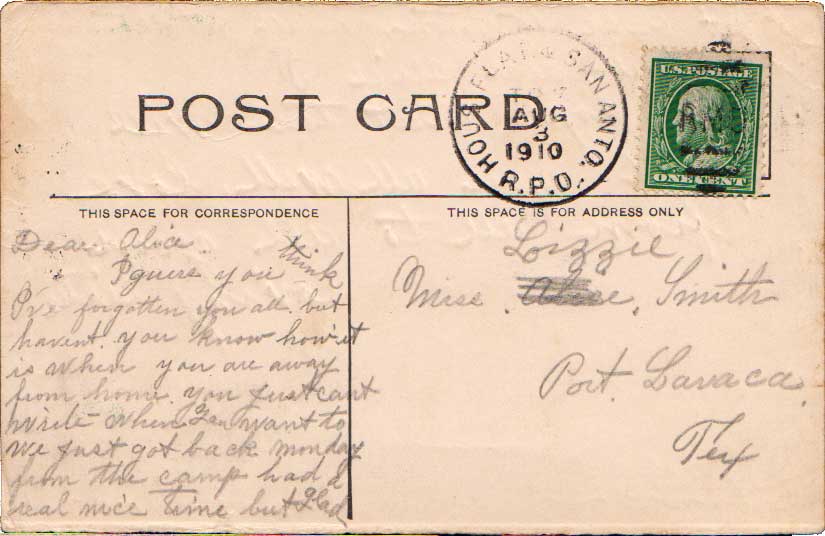 POST CARD
HOU. FLAT & SAN ANTO.
AUG
3
1910
R.P.O.
U.S. POSTAGE
ONE CENT
THIS SPACE FOR CORRESPONDENCE
THIS SPACE IS FOR ADDRESS ONLY
Dear Alice
I guess you think
I've forgotten you all but
havent. you know how it
is when you are away
from home. you just cant
write when you want to
We just got back monday
from the camp had a
real nice time but glad
Lizzie
Miss. Alice. Smith
Port. Lavaca.
Tex